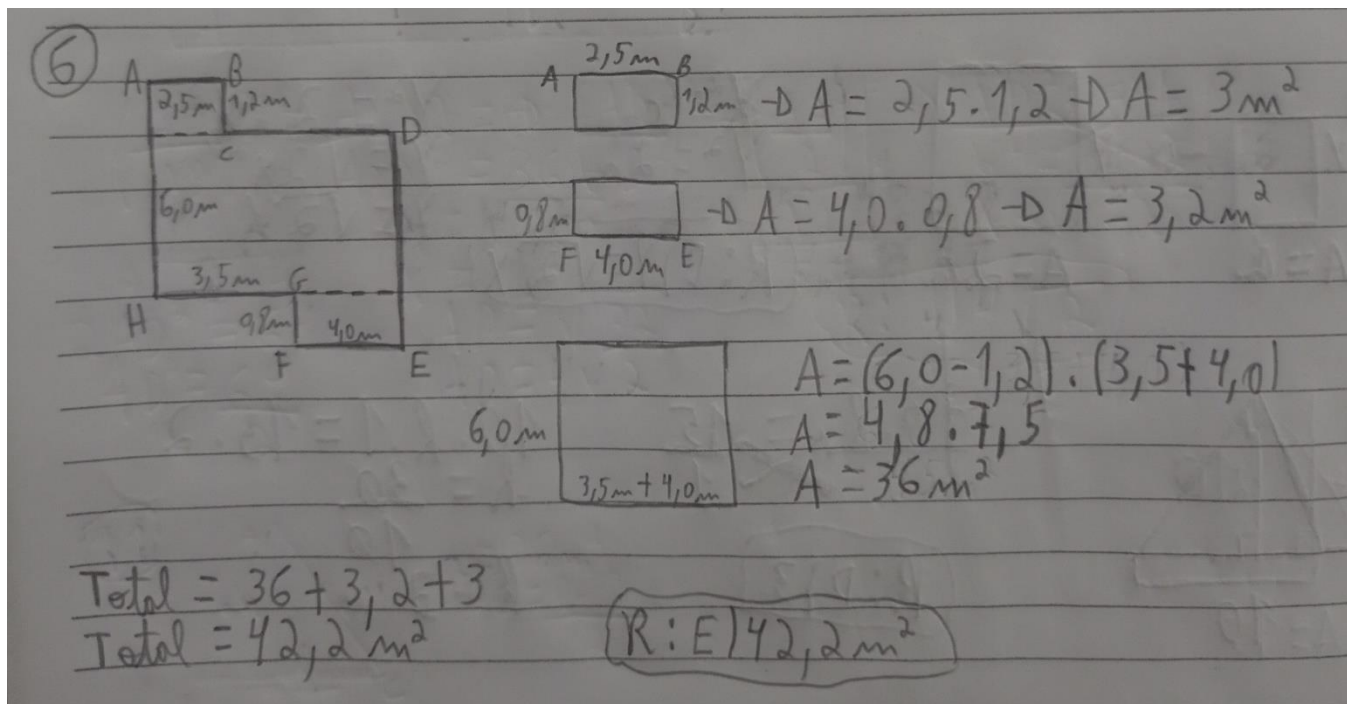 6
A B
2,5m 1,2m
C D
6,0m
3,5m G
H 0,8m 4,0m
F E
2,5m
A B
1,2m → A = 2,5.1,2 → A = 3m²
0,8m → A = 4,0.0,8 → A = 3,2m²
F 4,0m E
6,0m
3,5m + 4,0m
A = (6,0-1,2).(3,5+4,0)
A = 4,8.7,5
A = 36m²
Total = 36 + 3,2 + 3
Total = 42,2 m²
R: E) 42,2m²